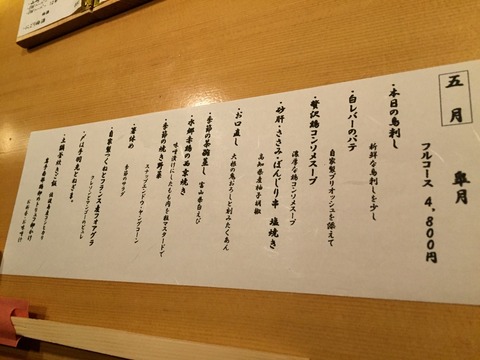 五月
皐月
フルコース 4,800円
・本日の鳥刺し
新鮮な鳥刺しを少し
・白レバーのパテ
自家製ブリオッシュを添えて
・贅沢鶏コンソメスープ
濃厚な鶏コンソメスープ
・砂肝・ささみ・ぼんじり串 塩焼き
高知県産柚子胡椒
・お口直し
大根の鬼おろしと刻みたくあん
・季節の茶碗蒸し
富山県白えび
・水郷赤鶏の西京焼き
味噌漬けにしたもも肉を粒マスタードで
・季節の焼き野菜
スナップエンドウ・ヤングコーン
・箸休め
季節のサラダ
・自家製つくねとフランス産フォアグラ
・〆は手羽先とねぎま。
・土鍋釜炊きご飯